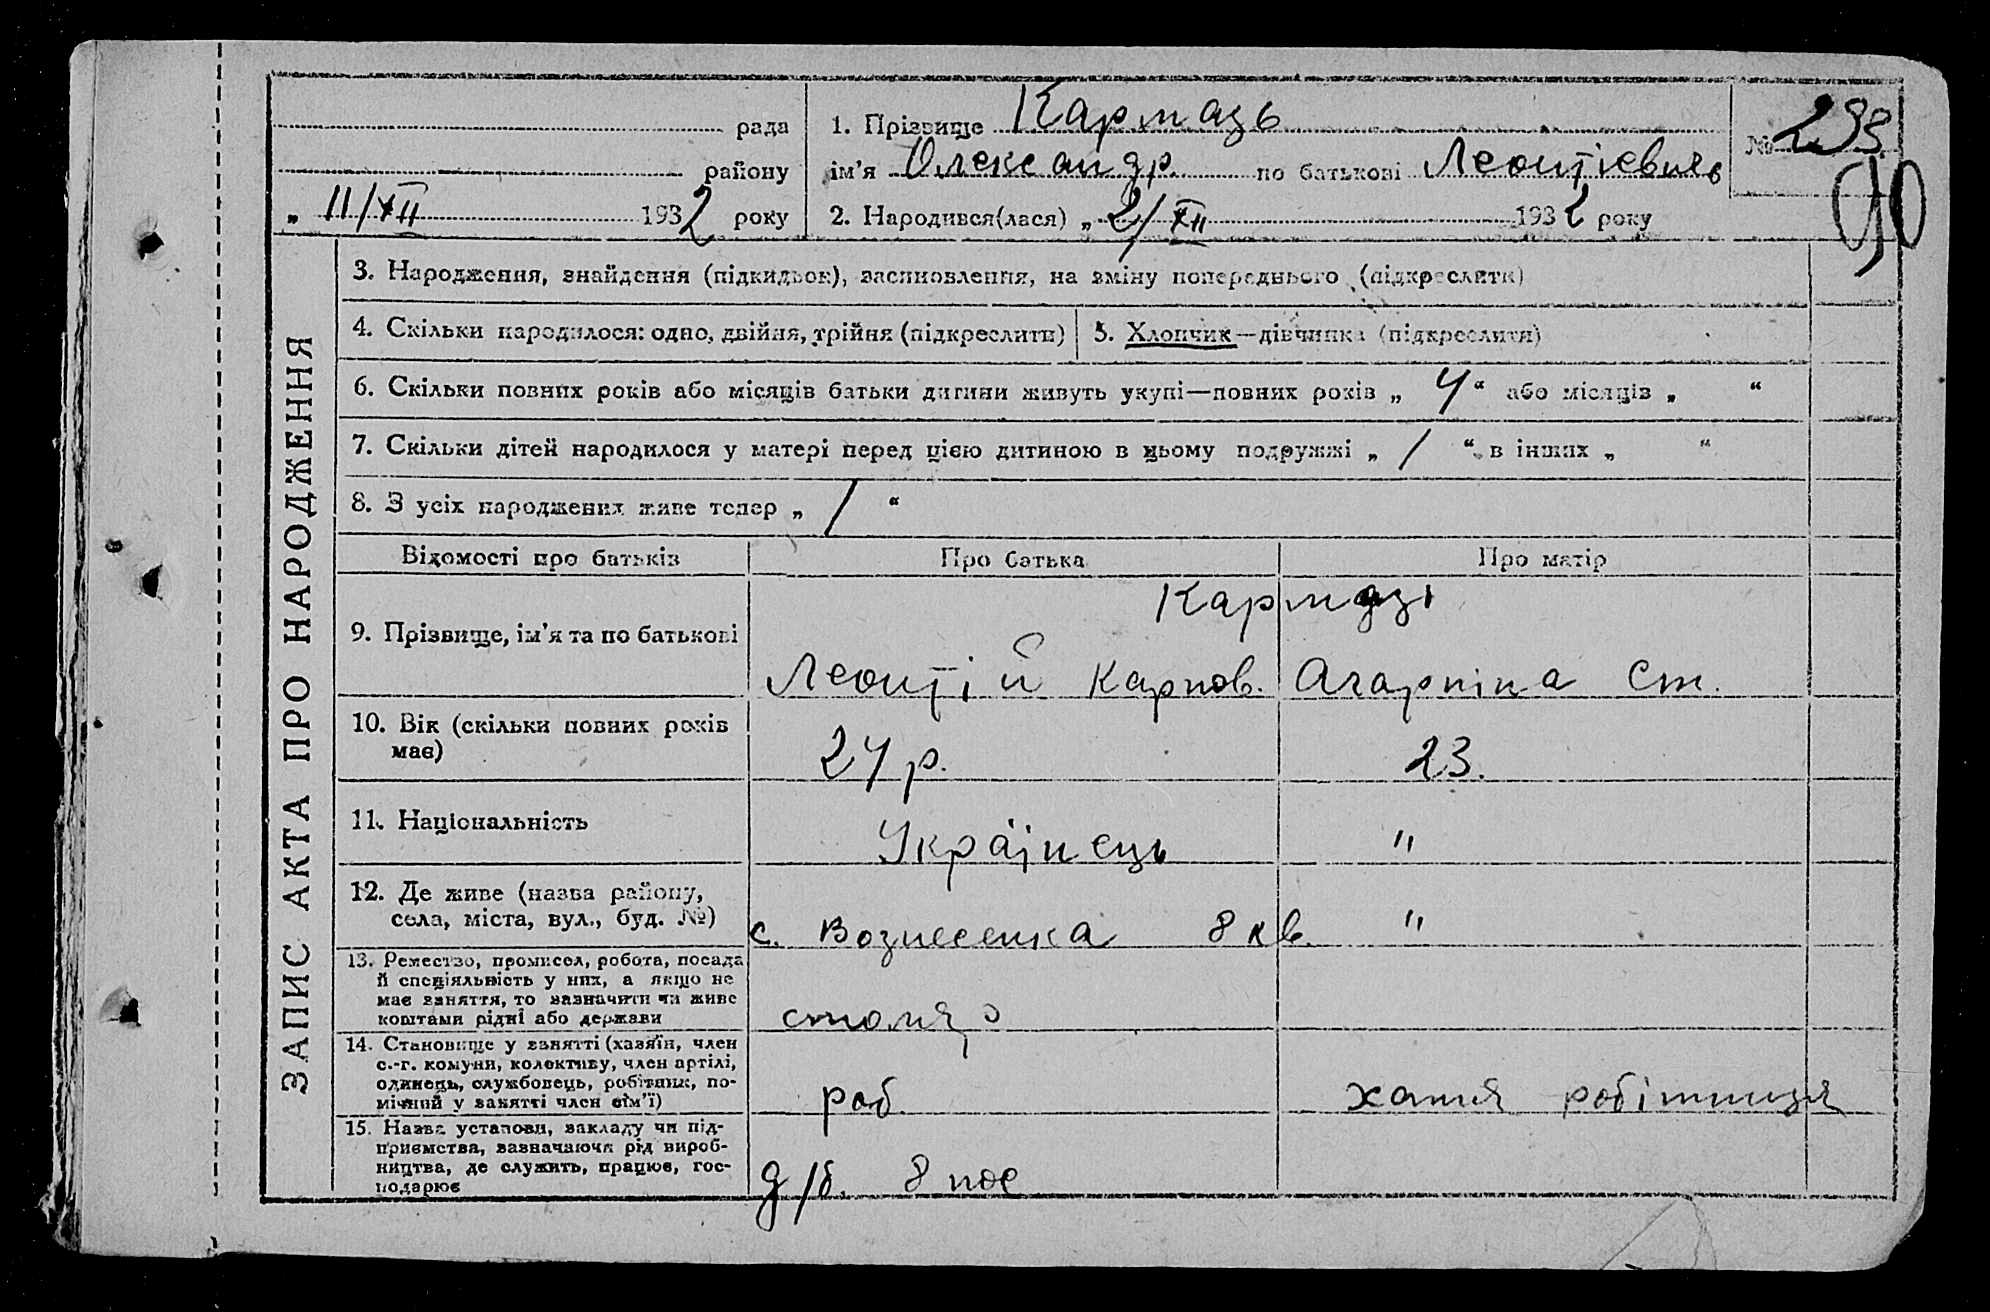 рада
району
„ 11/XII 1932 року
1. Прізвище Кармазь
ім'я Олександр. по батькові Леонтієвич
2. Народився(лася) „ 2/XII 1932 року
№ 293
ЗАПИС АКТА ПРО НАРОДЖЕННЯ
3. Народження, знайдення (підкидьок), засиновлення, на зміну попереднього (підкреслити)
4. Скільки народилося: одно, двійня, трійня (підкреслити) 5. Хлопчик—дівчинка (підкреслити)
6. Скільки повних років або місяців батьки дитини живуть укупі—повних років „ 4 “ або місяців „ “
7. Скільки дітей народилося у матері перед цією дитиною в цьому подружжі „ 1 “ в інших „ “
8. З усіх народжених живе тепер „ 1 “
Відомості про батьків Про батька Про матір
Кармазі
9. Прізвище, ім'я та по батькові
Леонтій Карпов. Агарпіна Ст.
10. Вік (скільки повних років
має) 24 р. 23.
11. Національність Українець "
12. Де живе (назва району,
села, міста, вул., буд. №) с. Вознесенка 8 кв. "
13. Ремество, промисел, робота, посада
й спеціяльність у них, а якщо не
має заняття, то зазначити чи живе
коштами рідні або держави столяр
14. Становище у занятті (хазяїн, член
с.-г. комуни, колективу, член артілі,
одинець, службовець, робітник, по-
мічний у занятті член сім'ї) роб. хатня робітниця
15. Назва установи, закладу чи під-
приємства, зазначаючи рід вироб-
ництва, де служить, працює, гос-
подарює д/б. 8 пос